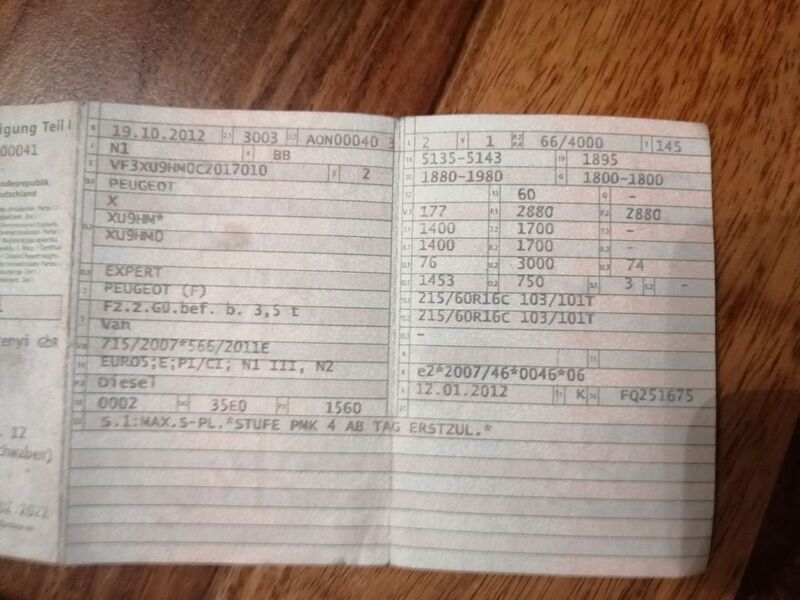 igung Teil I
00041
ndesrepublik
eutschland
enyi GbR
. 12
.2022
B 19.10.2012 2.1 3003 2.2 AON00040 3
J N1 4 BB
E VF3XU9HN0CZ017010 3 2
D.1 PEUGEOT
X
D.2 XU9HN*
XU9HMD
D.3 EXPERT
2 PEUGEOT (F)
5 Fz.z.Gü.bef. b. 3,5 t
Van
V.9 715/2007*566/2011E
14 EURO5;E;PI/CI; N1 III, N2
P.3 Diesel
10 0002 14.1 35E0 P.1 1560
22 S.1:MAX.5-PL.*STUFE PMK 4 AB TAG ERSTZUL.*
L 2 9 1 P.2 P.4 66/4000 T 145
18 5135-5143 19 1895
20 1880-1980 G 1800-1800
12 13 60 Q -
V.7 177 F.1 2880 F.2 2880
7.1 1400 7.2 1700 7.3 -
8.1 1400 8.2 1700 8.3 -
U.1 76 U.2 3000 U.3 74
O.1 1453 O.2 750 S.1 3 S.2 -
15.1 215/60R16C 103/101T
15.2 215/60R16C 103/101T
15.3 -
R 11
K e2*2007/46*0046*06
6 12.01.2012 17 K 16 FQ251675
21